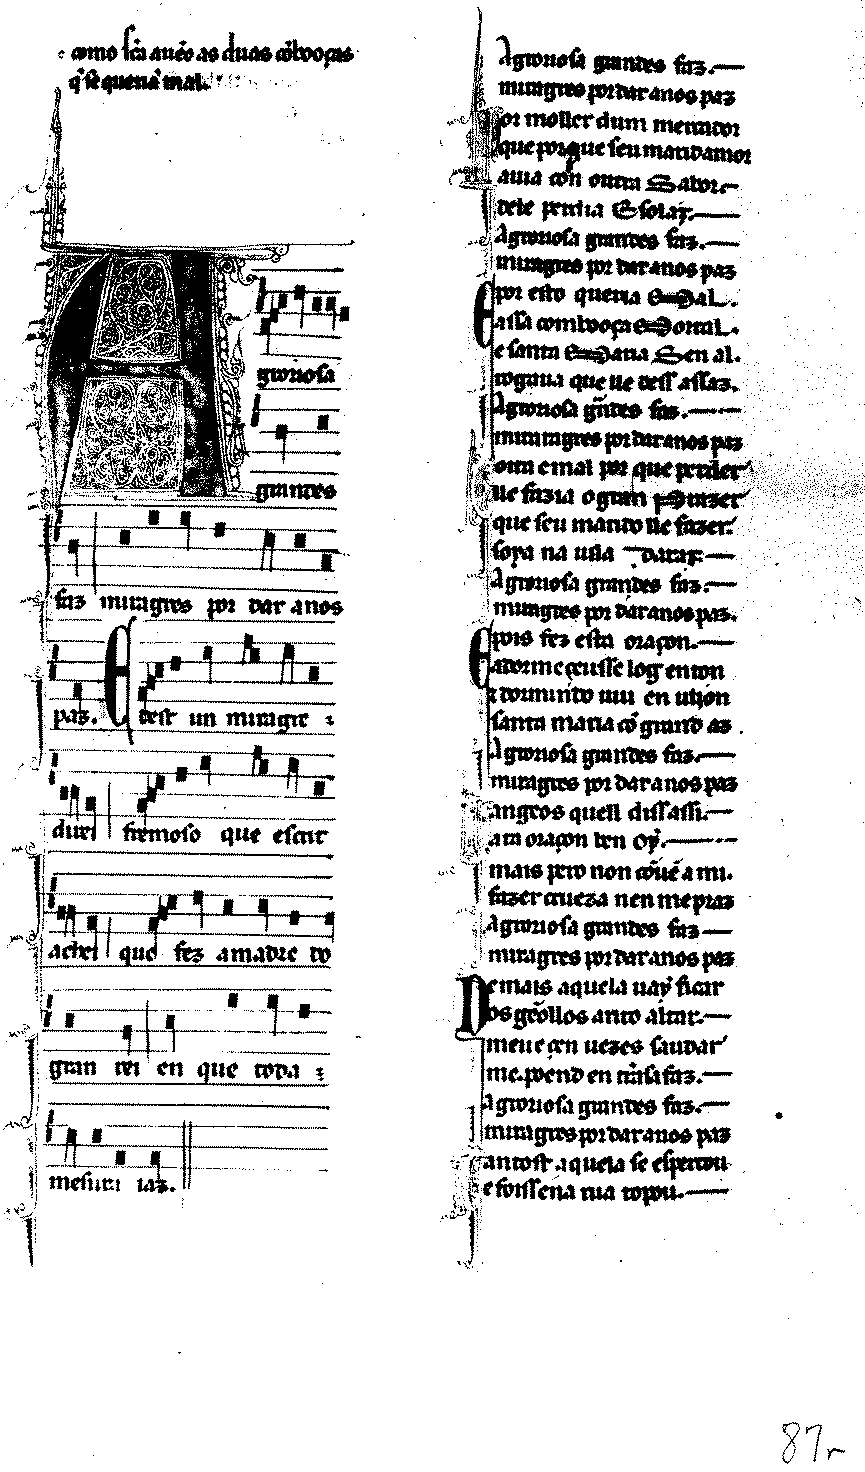 como sc̃a auẽo as duas cõbooças
q̃ se querıã mal.
gloriosa
grandes
faz miragres por dar anos
paz. E dest un miragre
direi fremoso que escar
achei que fez amadre do
gran rei en que toda
mesura iaz.
A groriosa grandes faz.
miragres por dar anos paz
por moller dum mercador
que porque seu marid amor
auia cõn outra Sabor.
dele perdia E solaz.
A groriosa grandes faz.
miragres por dar anos paz
E por esto queria Mal.
assa combooça Mortal.
e santa Maria Sen al.
rogaua que lle dess assaz.
A groriosa grñdes faz.
miragres por dar anos paz
coita e mal por que perder
lle fazia o gran Prazer
que seu marido lle fazer.
soya na uila Darraz.
A groriosa grandes faz.
miragres por dar anos paz.
E pois fez esta oraçon.
adormeceusse log enton
e dormindo uiu en uijon
santa maria cõ grand az
A groriosa grandes faz.
miragres por dar anos paz
angeos quell diss assi.
a ta oraçon ben oy.
mais pero non cõuẽ a mi.
fazer crueza nen me praz
A groriosa grandes faz
miragres por dar anos paz
Demais aquela uay ficar
os gẽollos anto altar.
meu e cen uezes saudar
me. poend en trã sa faz.
A groriosa grandes faz.
miragres por dar anos paz
antost aquela se espertou
e foisse na rua topou.
87r